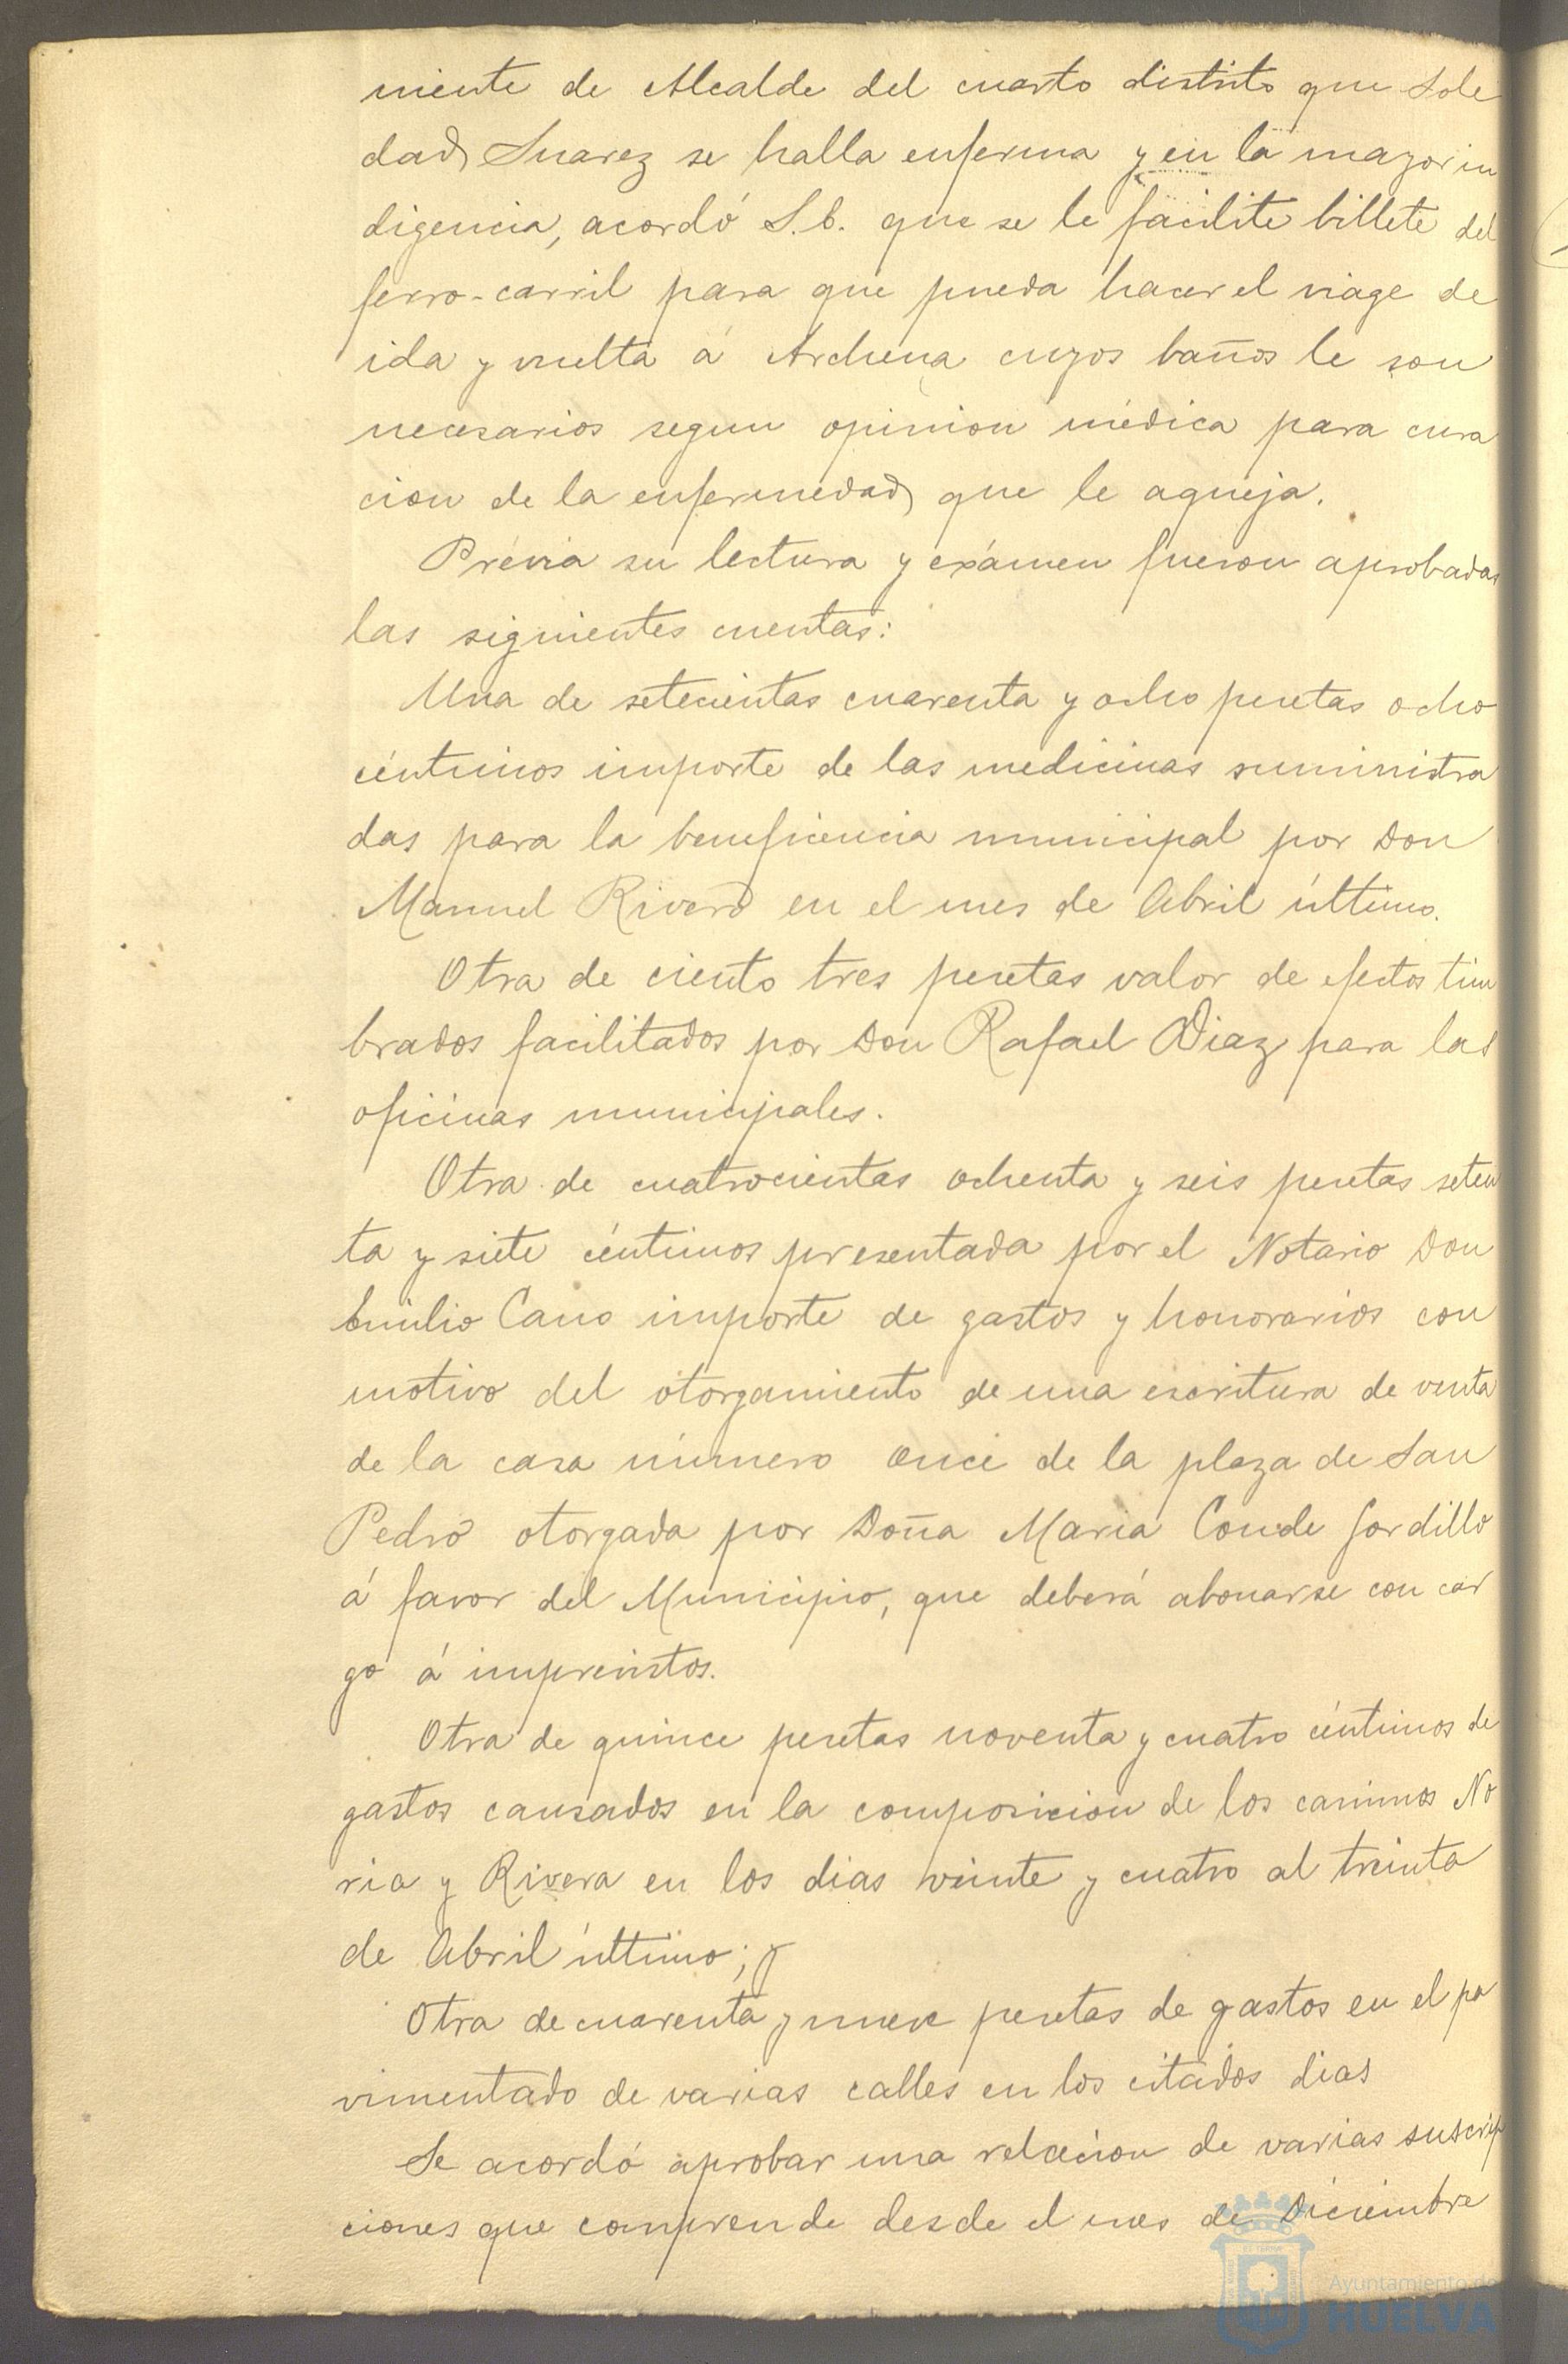 niente de Alcalde del cuarto distrito que Sole
dad Suarez se halla enferma y en la mayor in
digencia, acordó S.E. que se le facilite billete del
ferro-carril para que pueda hacer el viage de
ida y vuelta á Archena cuyos baños le son
necesarios segun opinion médica para cura
cion de la enfermedad que le aqueja.
Prévia su lectura y exámen fueron aprobadas
las siguientes cuentas:
Una de setecientas cuarenta y ocho pesetas ocho
céntimos importe de las medicinas suministra
das para la beneficencia municipal por Don
Manuel Rivero en el mes de Abril último.
Otra de ciento tres pesetas valor de efectos tim
brados facilitados por Don Rafael Diaz para las
oficinas municipales.
Otra de cuatrocientas ochenta y seis pesetas seten
ta y siete céntimos presentada por el Notario Don
Emilio Cano importe de gastos y honorarios con
motivo del otorgamiento de una escritura de venta
de la casa número once de la plaza de San
Pedro otorgada por Doña Maria Conde Gordillo
á favor del Municipio, que deberá abonarse con car
go á imprevistos.
Otra de quince pesetas noventa y cuatro céntimos de
gastos causados en la composicion de los caminos No
ria y Rivera en los dias veinte y cuatro al treinta
de Abril último; y
Otra de cuarenta y nueve pesetas de gastos en el pa
vimentado de varias calles en los citados dias
Se acordó aprobar una relacion de varias suscrip
ciones que comprende desde el mes de Diciembre
Ayuntamiento de
HUELVA